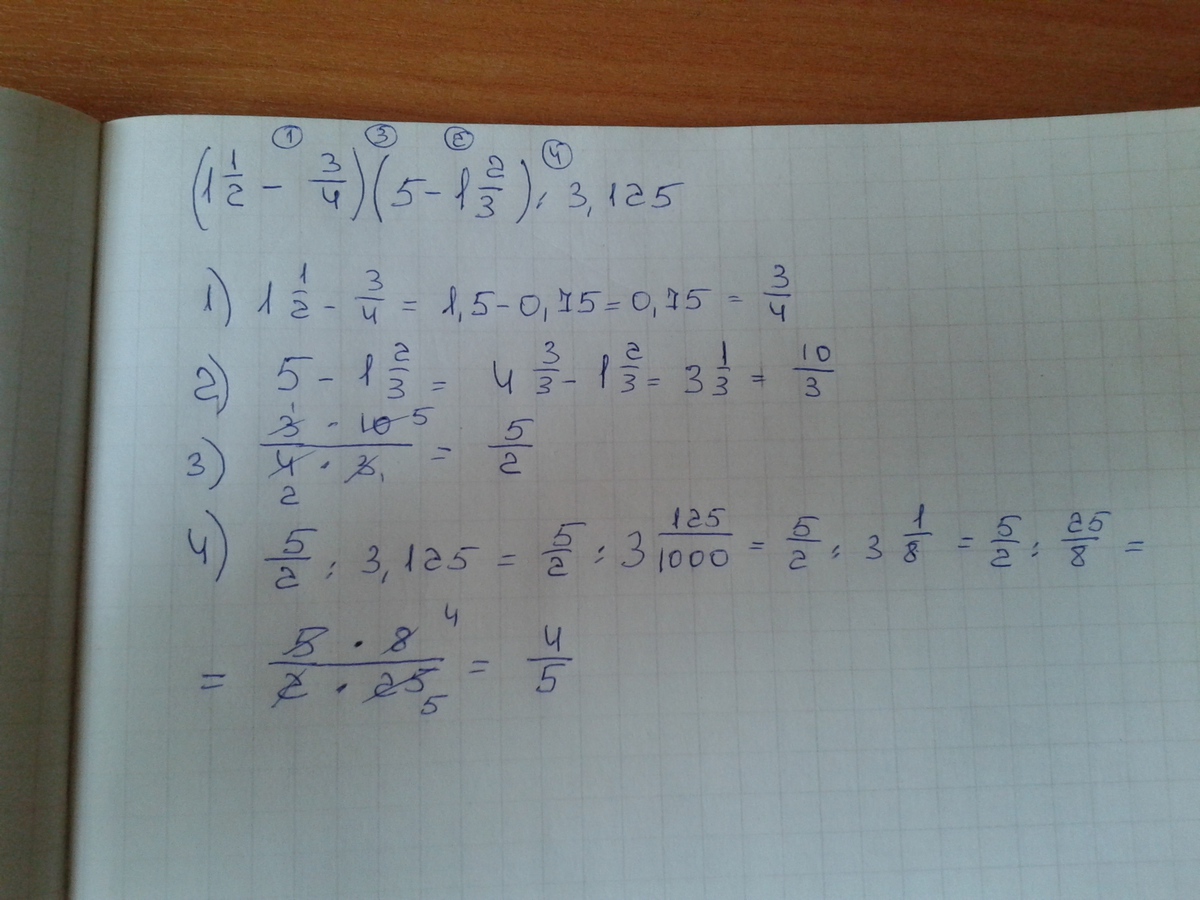 ① ③ ② ④
(1 1/2 - 3/4)(5 - 1 2/3) : 3,125
1) 1 1/2 - 3/4 = 1,5 - 0,75 = 0,75 = 3/4
2) 5 - 1 2/3 = 4 3/3 - 1 2/3 = 3 1/3 = 10/3
3) (3 · 10 5)/(4 2 · 3 1) = 5/2
4) 5/2 : 3,125 = 5/2 : 3 125/1000 = 5/2 : 3 1/8 = 5/2 : 25/8 =
= (5 · 8 4)/(2 · 25 5) = 4/5